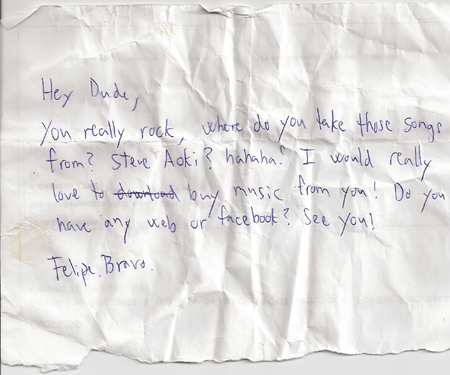 Hey Dude,
You really rock, where do you take those songs
from? Steve Aoki? hahaha! I would really
love to download buy music from you! Do you
have any web or facebook? See you!
Felipe.Bravo.